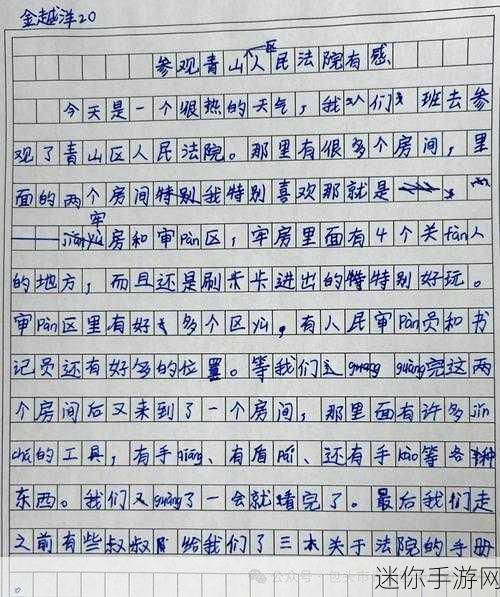 金越洋20
参观青山区人民法院有感
今天是一个很热的天气，我们班去参
观了青山区人民法院。那里有很多个房间，里
面的两个房间特别我特别喜欢那就是
牢
房和审pàn区，牢房里面有4个关fàn人
的地方，而且还是刷卡进出的特特别好玩。
审pàn区里有好多个区，有人民审pàn员和书
记员还有好多的位置。等我们guàng完这两
个房间后又来到了一个房间，那里面有许多jǐn
chá的工具，有手qiāng、有盾pái、还有手kào等各种
东西。我们又guàng了一会就逛完了。最后我们走
之前有些叔叔给我们了三本关于法院的手册
。
公众号·包头市
迷你手游网